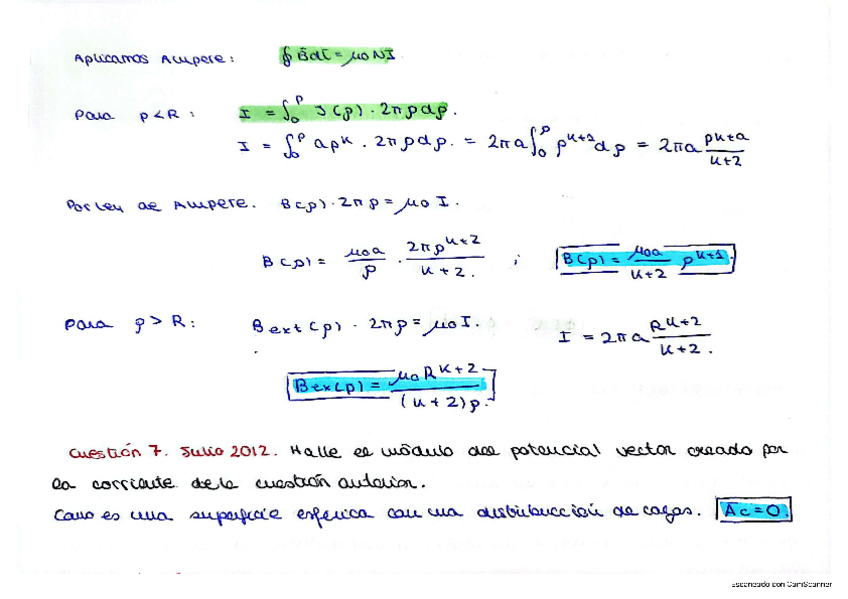 Aplicamos Ampere: ∮B̄dl̄ = μ0 NI.
Para ρ<R: I = ∫₀^ρ J(ρ)·2πρdρ.
I = ∫₀^ρ aρ^k · 2πρdρ. = 2πa∫₀^ρ ρ^(k+1) dρ = 2πa ρ^(k+2)/(k+2)
Por ley de Ampere. B(ρ)·2πρ = μ0 I.
B(ρ) = μ0a/ρ · 2πρ^(k+2)/(k+2). ; B(ρ) = μ0a/(k+2) ρ^(k+1).
Para ρ > R: Bext(ρ) · 2πρ = μ0I. I = 2πa R^(k+2)/(k+2).
Bex(ρ) = μ0R^(k+2)/((k+2)ρ.)
Cuestión 7. Julio 2012. Halle el módulo del potencial vector creado por
la corriente de la cuestión anterior.
Como es una superficie esférica con una distribucción de cagas. Ac=0.
Escaneado con CamScanner